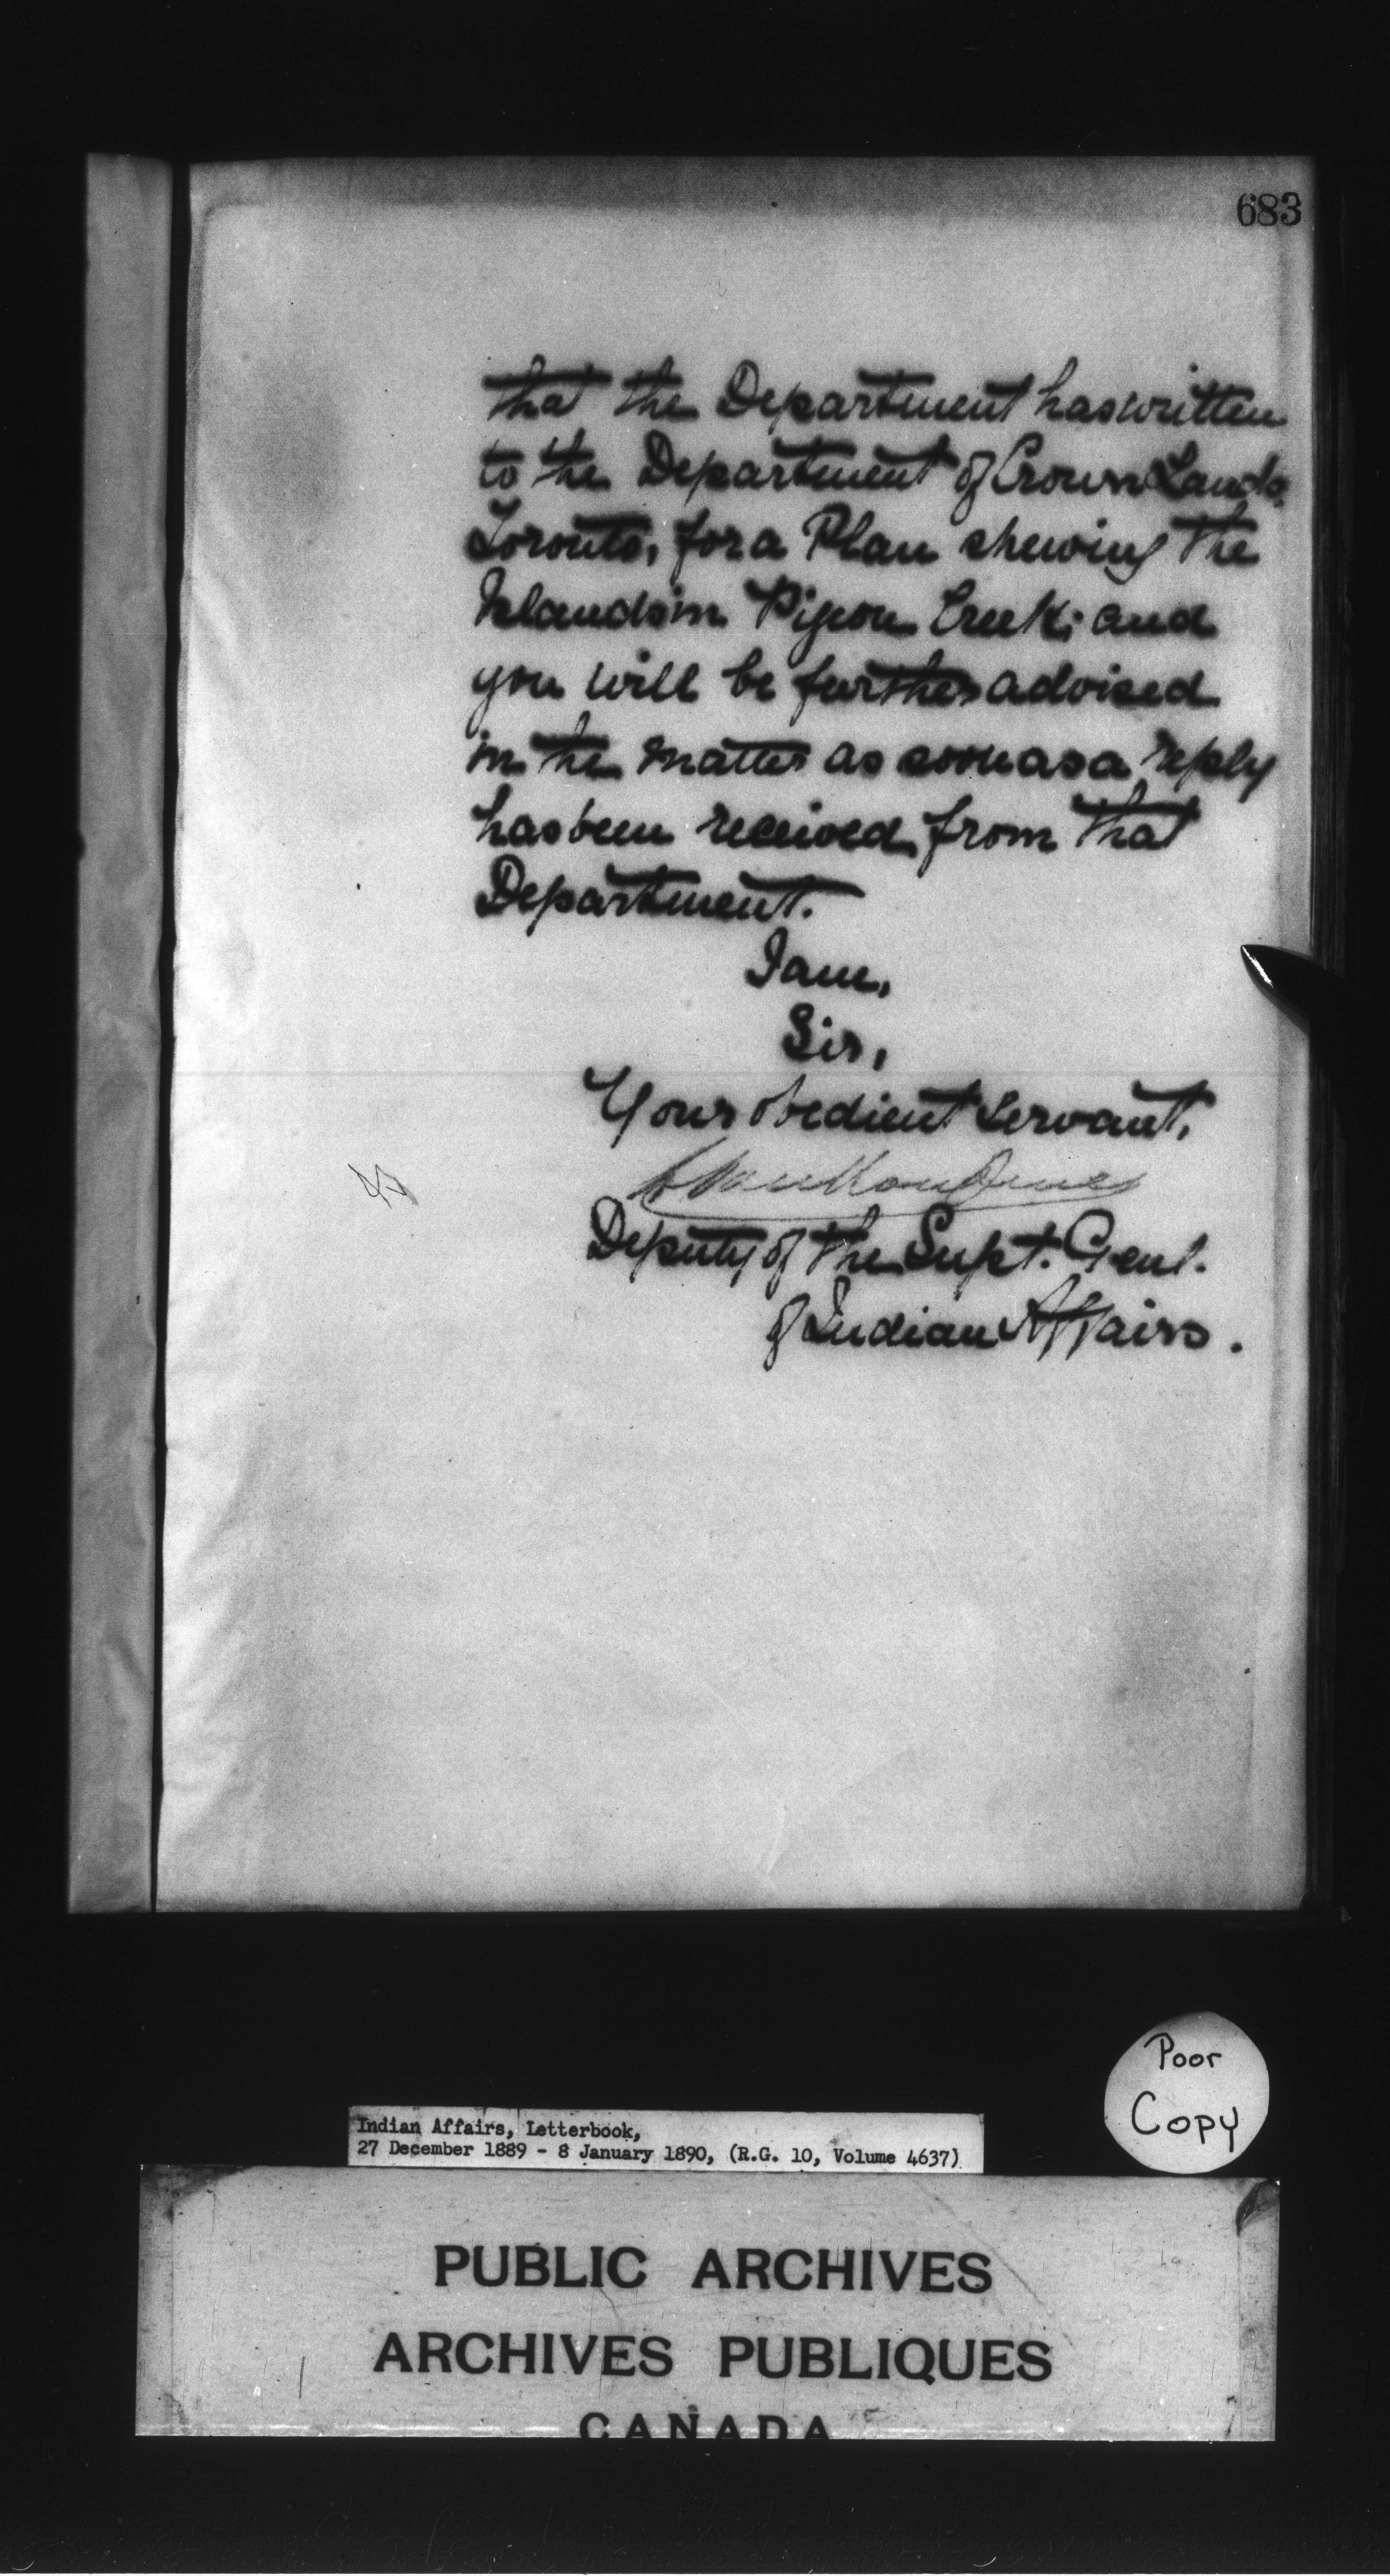 683
that the Department has written
to the Department of Crown Lands,
Toronto, for a Plan shewing the
Islands in Pigeon Creek; and
you will be further advised
in the matter as soon as a reply
has been received from that
Department.
I am,
Sir,
Your obedient servant,
L Vankoughnet
Deputy of the Supt. Genl.
of Indian Affairs.
Poor
Copy
Indian Affairs, Letterbook,
27 December 1889 - 8 January 1890, (R.G. 10, Volume 4637)
PUBLIC ARCHIVES
ARCHIVES PUBLIQUES
CANADA